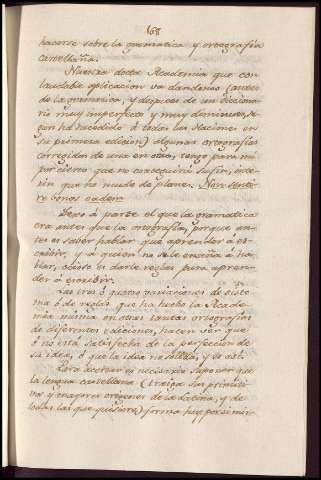 168
hacerse sobre la gramatica y ortografia
castellana.
Nuestra docta Academia que con
laudable aplicacion va dandonos (antes
de la gramatica, y despues de un dicciona-
rio muy imperfecto y muy diminuto, se-
gun há sucedido á todas las Naciones en
su primera edicion) algunas ortografias
corregidas de una en otra, tengo para mi
por cierto que no conseguirá su fin, inte-
rin que no mude de planes. Non
bonos eadem
Dexo á parte el que la gramatica
era antes que la ortografia, porque an-
tes es saber hablar que aprender á es-
cribir, y á quien no se le enseña á ha-
blar, ocioso es darle reglas para apren-
der á escribir.
Las tres ó quatro variaciones de siste-
ma ó de reglas que ha hecho la Acade-
mia misma en otras tantas ortografias
de diferentes ediciones, hacen ver que
ó no está satisfecha de la perfeccion de
su idea, ó que la idea no es fixa, y se está
Para acertar es necesario suponer que
la lengua castellana (traiga sus primiti-
vos y mayores origenes de la Latina, y de
todas las que quisiere) forma hoy por si mis-